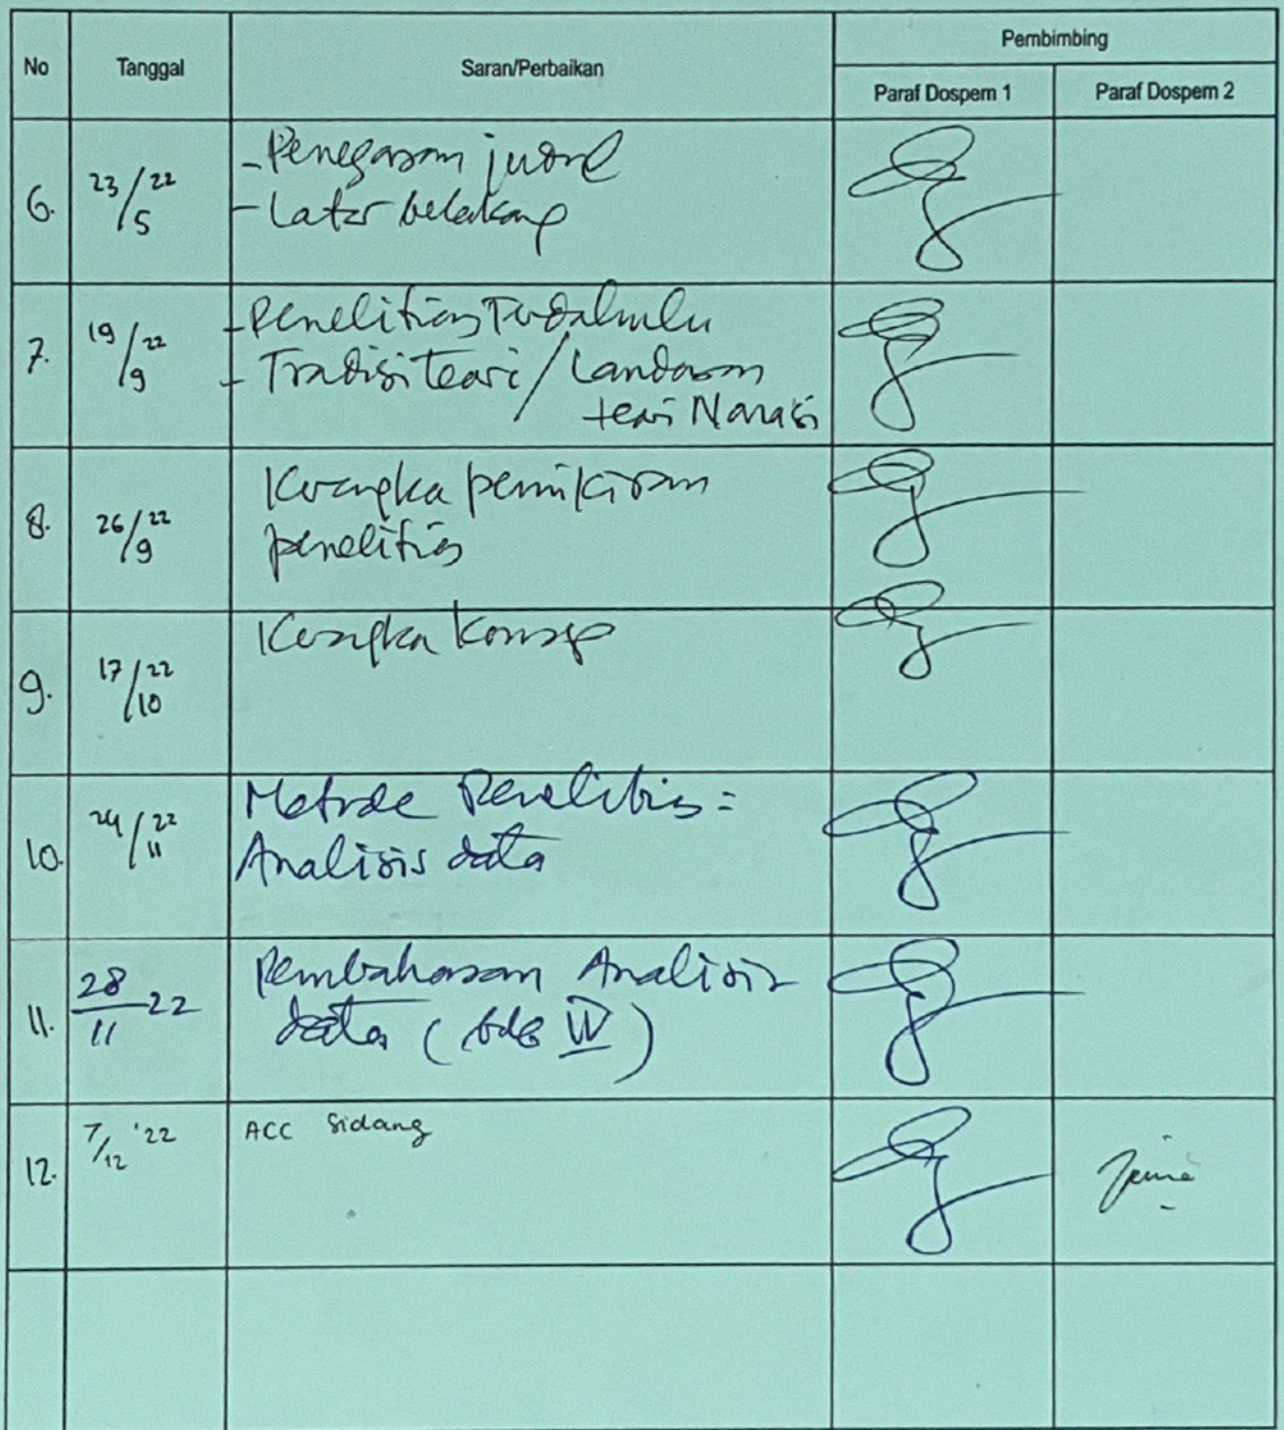 No Tanggal Saran/Perbaikan Pembimbing
Paraf Dospem 1 Paraf Dospem 2
6. 23/5 22
- Penegasan judul
- Latar belakang
7. 19/9 22
- Penelitian Terdahulu
- Tradisi teori / Landasan
teori Narasi
8. 26/9 22
Kerangka pemikiran
penelitian
9. 17/10 22
Kerangka Konsep
10. 24/11 22
Metode Penelitian =
Analisis data
11. 28/11 22
Pembahasan Analisis
data (bab IV)
12. 7/12 '22
ACC Sidang